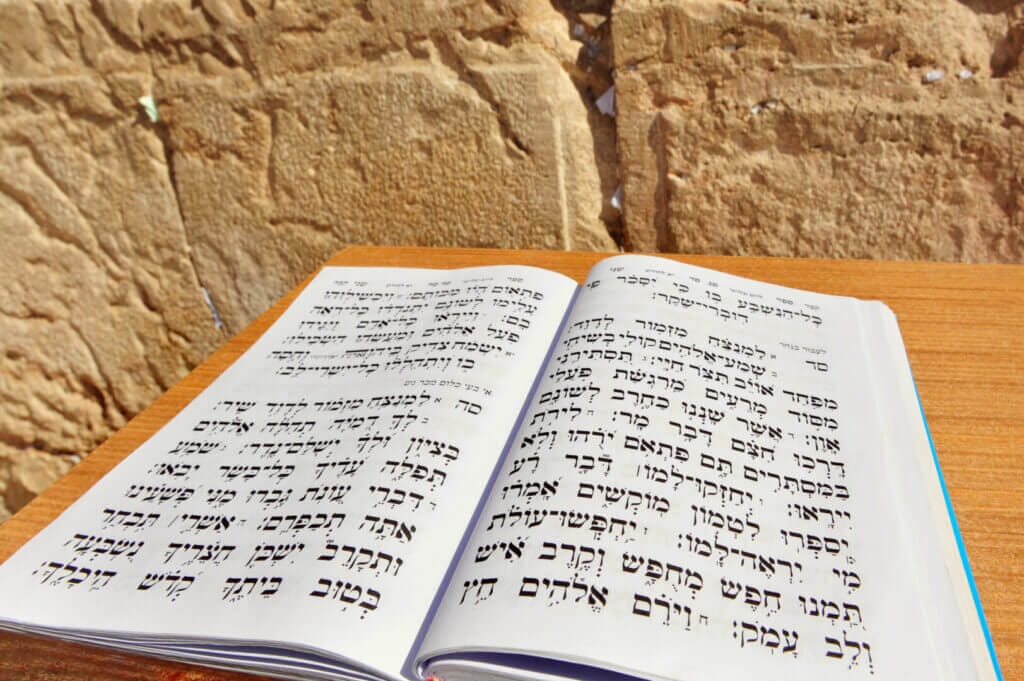 כָּל־הַנִּשְׁבָּע בּוֹ כִּי יִסָּכֵר פִּי
דוֹבְרֵי־שָׁקֶר:
לעבור בנהר
סד א לַמְנַצֵּחַ מִזְמוֹר לְדָוִד:
ב שְׁמַע־אֱלֹהִים קוֹלִי בְשִׂיחִי
מִפַּחַד אוֹיֵב תִּצֹּר חַיָּי: ג תַּסְתִּירֵנִי
מִסּוֹד מְרֵעִים מֵרִגְשַׁת פֹּעֲלֵי
אָוֶן: ד אֲשֶׁר שָׁנְנוּ כַחֶרֶב לְשׁוֹנָם
דָּרְכוּ חִצָּם דָּבָר מָר: ה לִירֹת
בַּמִּסְתָּרִים תָּם פִּתְאֹם יֹרֻהוּ וְלֹא
יִירָאוּ: ו יְחַזְּקוּ־לָמוֹ ׀ דָּבָר רָע
יְסַפְּרוּ לִטְמוֹן מוֹקְשִׁים אָמְרוּ
מִי יִרְאֶה־לָּמוֹ: ז יַחְפְּשׂוּ־עוֹלֹת
תַּמְנוּ חֵפֶשׂ מְחֻפָּשׂ וְקֶרֶב אִישׁ
וְלֵב עָמֹק: ח וַיֹּרֵם אֱלֹהִים חֵץ
פִּתְאוֹם הָיוּ מַכּוֹתָם: ט וַיַּכְשִׁילוּהוּ
עָלֵימוֹ לְשׁוֹנָם יִתְנֹדְדוּ כָּל־רֹאֵה
בָם: י וַיִּירְאוּ כָּל־אָדָם וַיַּגִּידוּ
פֹּעַל אֱלֹהִים וּמַעֲשֵׂהוּ הִשְׂכִּילוּ:
יא יִשְׂמַח צַדִּיק בַּיהוָה וְחָסָה
בוֹ וְיִתְהַלְלוּ כָּל־יִשְׁרֵי־לֵב:
סה א לַמְנַצֵּחַ מִזְמוֹר לְדָוִד שִׁיר:
ב לְךָ דֻמִיָּה תְהִלָּה אֱלֹהִים
בְּצִיּוֹן וּלְךָ יְשֻׁלַּם־נֶדֶר: ג שֹׁמֵעַ
תְּפִלָּה עָדֶיךָ כָּל־בָּשָׂר יָבֹאוּ:
ד דִּבְרֵי עֲוֹנֹת גָּבְרוּ מֶנִּי פְּשָׁעֵינוּ
אַתָּה תְכַפְּרֵם: ה אַשְׁרֵי ׀ תִּבְחַר
וּתְקָרֵב יִשְׁכֹּן חֲצֵרֶיךָ נִשְׂבְּעָה
בְּטוּב בֵּיתֶךָ קְדֹשׁ הֵיכָלֶךָ: